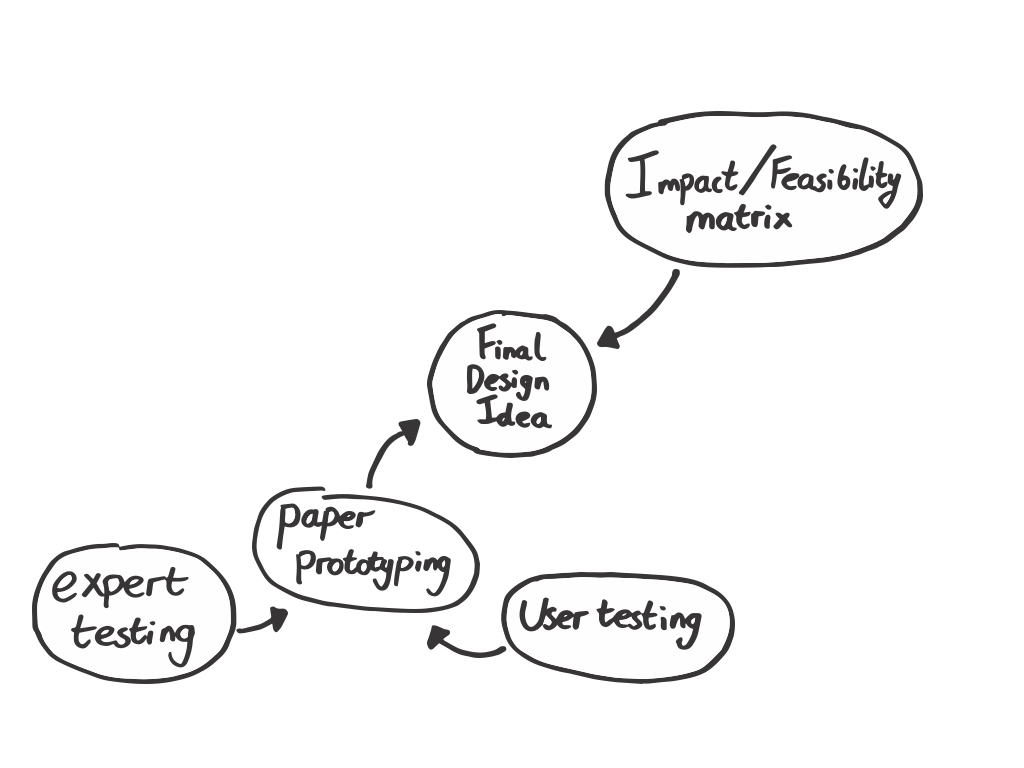 Impact/Feasibility
matrix
Final
Design
Idea
paper
prototyping
expert
testing
User testing